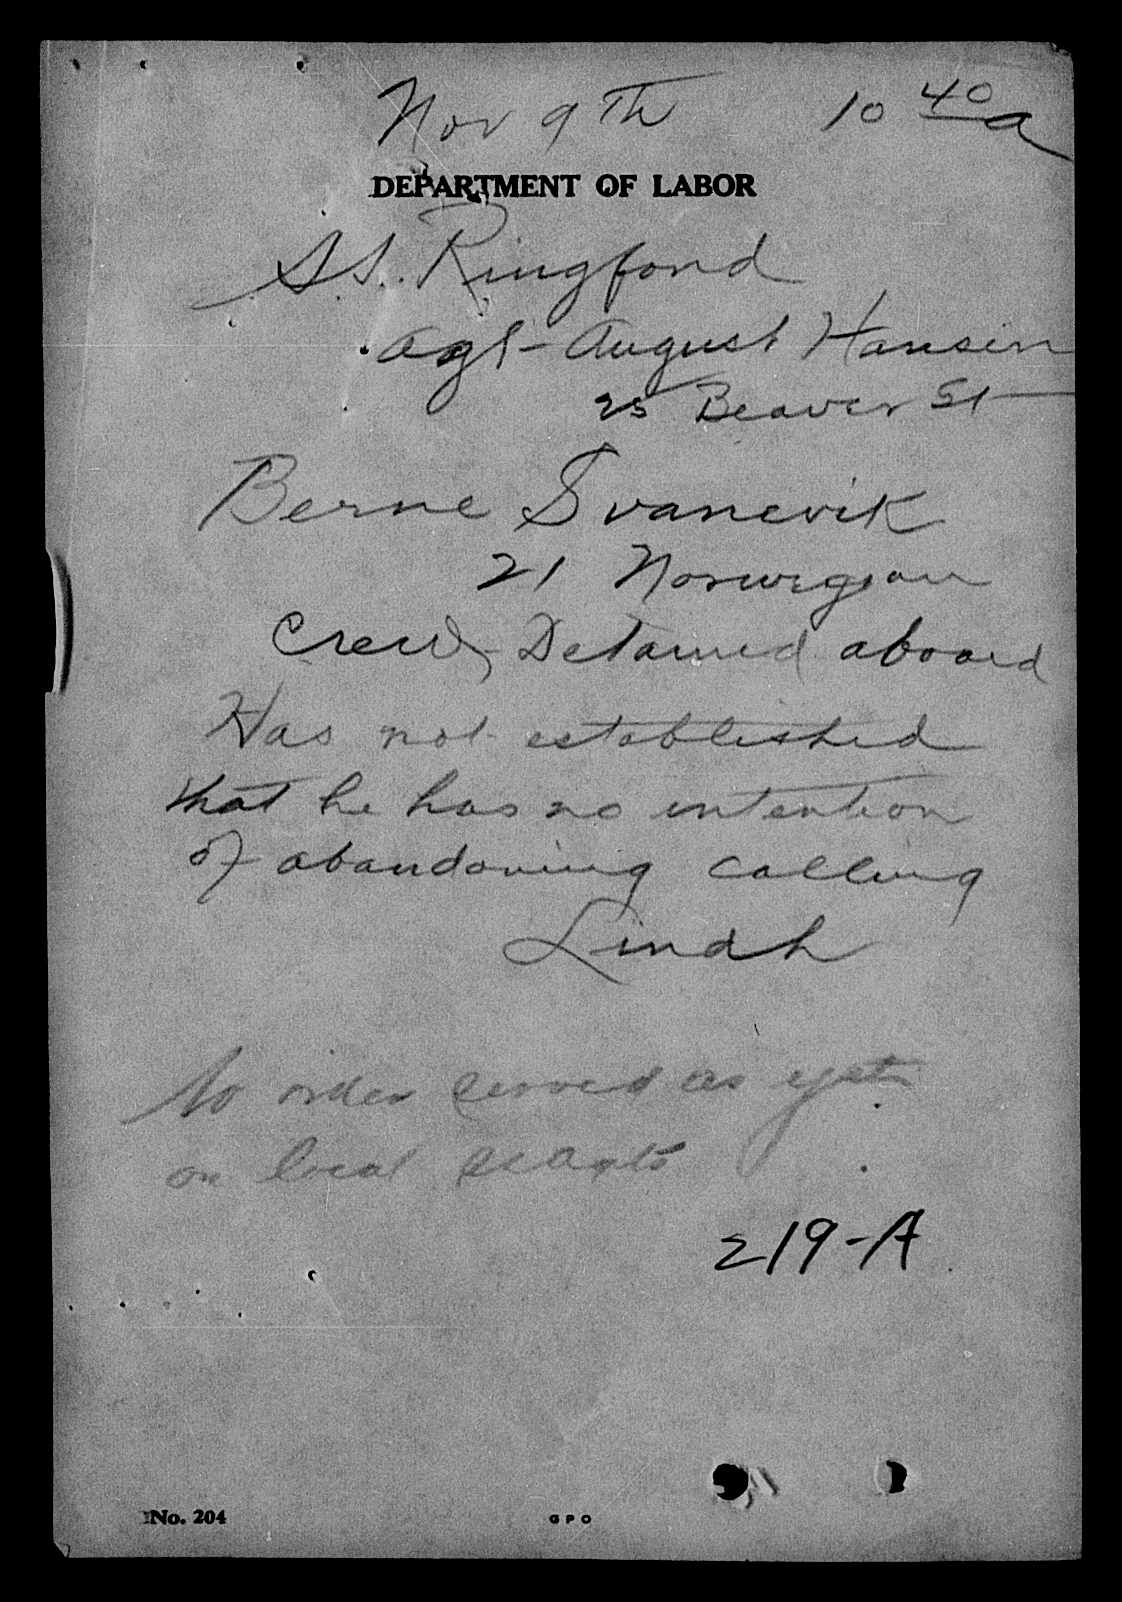 Nov 9 Th 10 40 a
DEPARTMENT OF LABOR
S.S. Ringfond
Agt - August Hansen
25 Beaver St
Berne Svanevik
21 Norwegian
Crew, Detained aboard
Has not established
that he has no intention
of abandoning calling
Lindh
No order served as yet.
on local SS Agts
219-A
No. 204
GPO